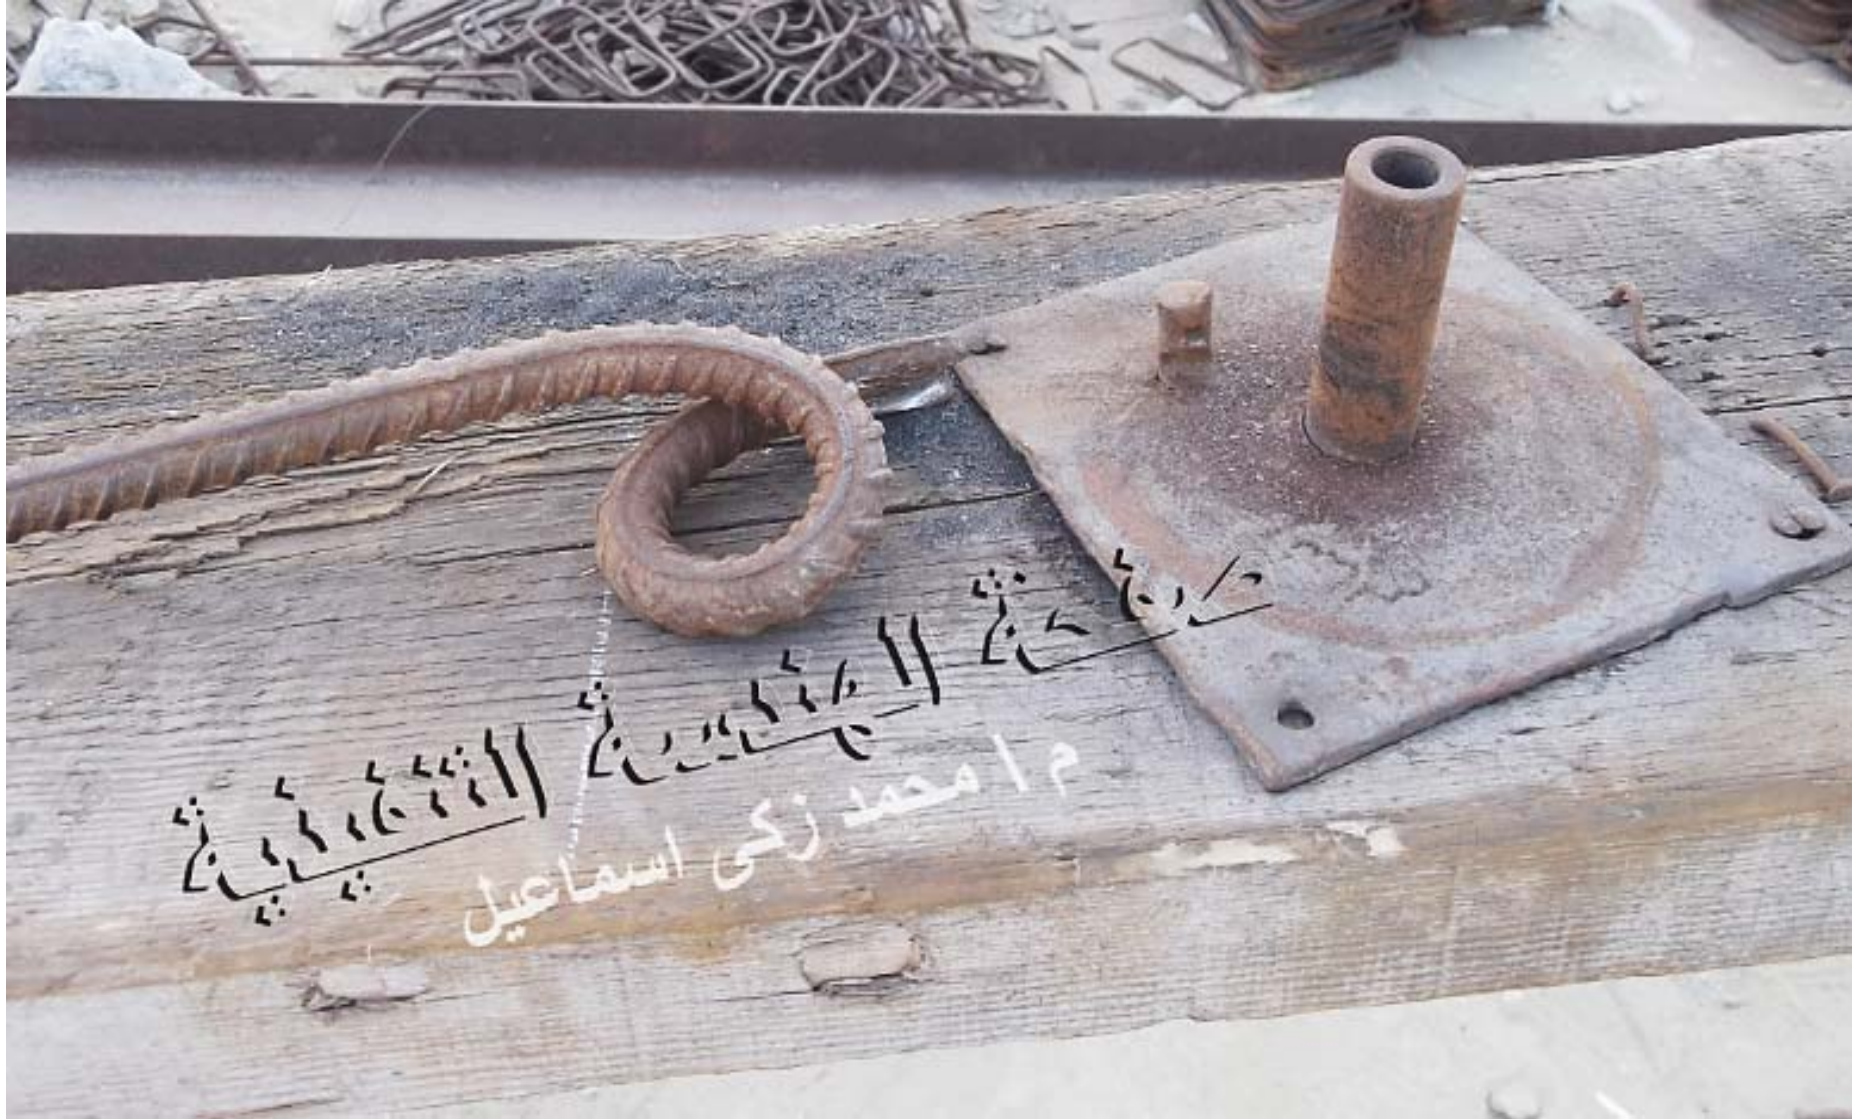 صفحة الهندسة التنفيذية
م / محمد زكى اسماعيل